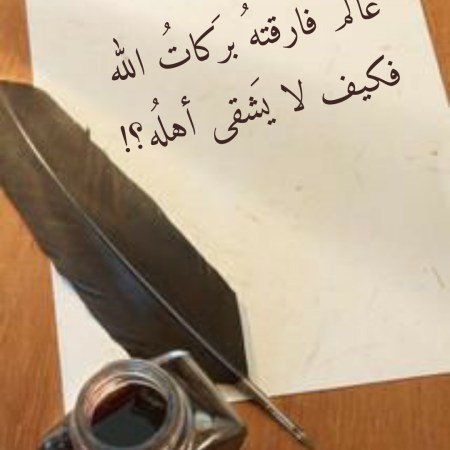 عالم فارقتهُ بركَاتُ الله
فكيف لا يشَقى أهلهُ؟!